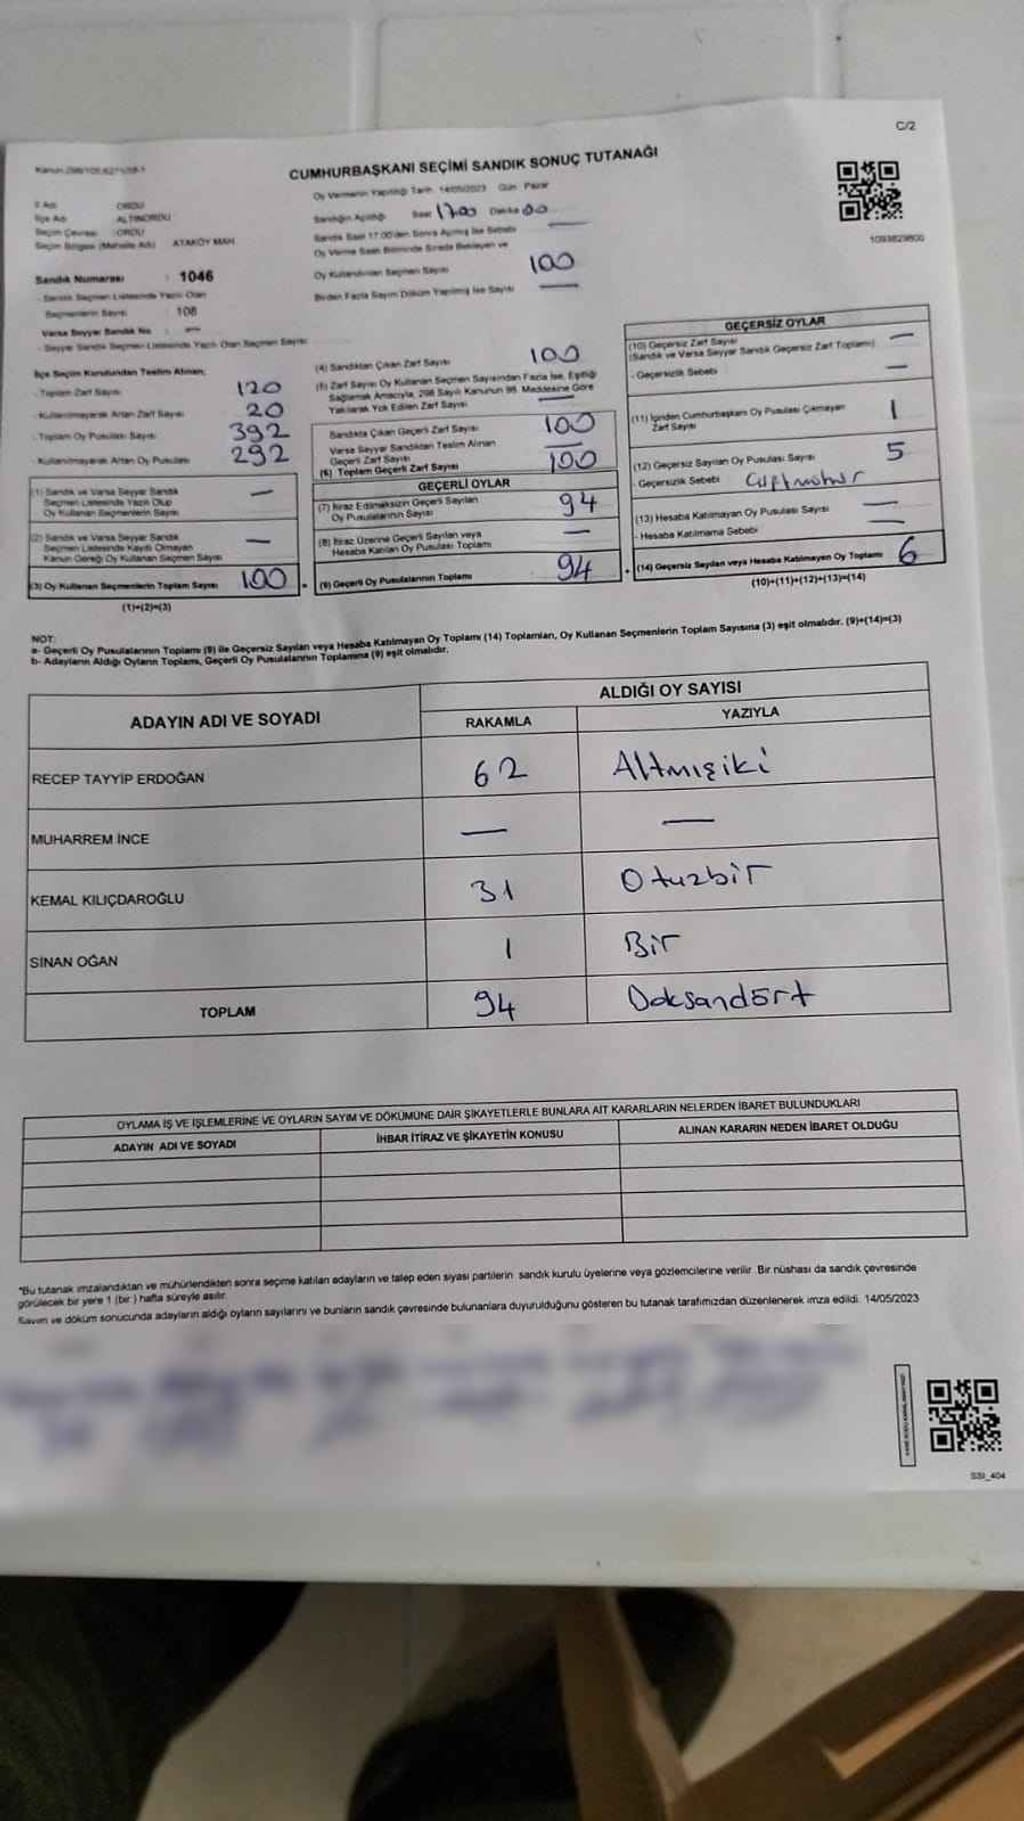 C/2
CUMHURBAŞKANI SEÇİMİ SANDIK SONUÇ TUTANAĞI
Oy Vermenin Yapıldığı Tarih 14/05/2023 Gün Pazar
İl Adı ORDU
İlçe Adı ALTINORDU
Seçim Çevresi ORDU
Seçim Bölgesi (Mahalle Adı) ATAKÖY MAH.
Sandık Numarası : 1046
- Sandık Seçmen Listesinde Yazılı Olan
Seçmenlerin Sayısı : 108
Varsa Seyyar Sandık No : —
- Seyyar Sandık Seçmen Listesinde Yazılı Olan Seçmen Sayısı
Sandığın Açıldığı Saat 17.00 Dakika 00
Sandık Saat 17.00'den Sonra Açılmış İse Sebebi —
Oy Verme Saati Bitiminde Sırada Bekleyen ve
Oy Kullandırılan Seçmen Sayısı 100
Birden Fazla Sayım Döküm Yapılmış İse Sayısı —
1093829800
İlçe Seçim Kurulundan Teslim Alınan;
- Toplam Zarf Sayısı 120
- Kullanılmayarak Artan Zarf Sayısı 20
- Toplam Oy Pusulası Sayısı 392
- Kullanılmayarak Artan Oy Pusulası 292
(1) Sandık ve Varsa Seyyar Sandık
Seçmen Listesinde Yazılı Olup
Oy Kullanan Seçmenlerin Sayısı —
(2) Sandık ve Varsa Seyyar Sandık
Seçmen Listesinde Kayıtlı Olmayan
Kanun Gereği Oy Kullanan Seçmen Sayısı —
(3) Oy Kullanan Seçmenlerin Toplam Sayısı 100
(1)+(2)=(3)
(4) Sandıktan Çıkan Zarf Sayısı 100
(5) Zarf Sayısı Oy Kullanan Seçmen Sayısından Fazla İse, Eşitliği
Sağlamak Amacıyla, 298 Sayılı Kanunun 98. Maddesine Göre
Yakılarak Yok Edilen Zarf Sayısı —
Sandıkta Çıkan Geçerli Zarf Sayısı 100
Varsa Seyyar Sandıktan Teslim Alınan
Geçerli Zarf Sayısı —
(6) Toplam Geçerli Zarf Sayısı 100
GEÇERLİ OYLAR
(7) İtiraz Edilmeksizin Geçerli Sayılan
Oy Pusulalarının Sayısı 94
(8) İtiraz Üzerine Geçerli Sayılan veya
Hesaba Katılan Oy Pusulası Toplamı —
(9) Geçerli Oy Pusulalarının Toplamı 94
GEÇERSİZ OYLAR
(10) Geçersiz Zarf Sayısı —
(Sandık ve Varsa Seyyar Sandık Geçersiz Zarf Toplamı)
- Geçersizlik Sebebi —
(11) İçinden Cumhurbaşkanı Oy Pusulası Çıkmayan
Zarf Sayısı 1
(12) Geçersiz Sayılan Oy Pusulası Sayısı 5
- Geçersizlik Sebebi
(13) Hesaba Katılmayan Oy Pusulası Sayısı —
- Hesaba Katılmama Sebebi —
(14) Geçersiz Sayılan veya Hesaba Katılmayan Oy Toplamı 6
(10)+(11)+(12)+(13)=(14)
NOT:
a- Geçerli Oy Pusulalarının Toplamı (9) ile Geçersiz Sayılan veya Hesaba Katılmayan Oy Toplamı (14) Toplamları, Oy Kullanan Seçmenlerin Toplam Sayısına (3) eşit olmalıdır. (9)+(14)=(3)
b- Adayların Aldığı Oyların Toplamı, Geçerli Oy Pusulalarının Toplamına (9) eşit olmalıdır.
ADAYIN ADI VE SOYADI
ALDIĞI OY SAYISI
RAKAMLA YAZIYLA
RECEP TAYYİP ERDOĞAN 62 Altmışiki
MUHARREM İNCE — —
KEMAL KILIÇDAROĞLU 31 Otuzbir
SİNAN OĞAN 1 Bir
TOPLAM 94 Doksandört
OYLAMA İŞ VE İŞLEMLERİNE VE OYLARIN SAYIM VE DÖKÜMÜNE DAİR ŞİKAYETLERLE BUNLARA AİT KARARLARIN NELERDEN İBARET BULUNDUKLARI
ADAYIN ADI VE SOYADI İHBAR İTİRAZ VE ŞİKAYETİN KONUSU ALINAN KARARIN NEDEN İBARET OLDUĞU
*Bu tutanak imzalandıktan ve mühürlendikten sonra seçime katılan adayların ve talep eden siyasi partilerin sandık kurulu üyelerine veya gözlemcilerine verilir. Bir nüshası da sandık çevresinde
görülecek bir yere 1 (bir) hafta süreyle asılır.
Sayım ve döküm sonucunda adayların aldığı oyların sayılarını ve bunların sandık çevresinde bulunanlara duyurulduğunu gösteren bu tutanak tarafımızdan düzenlenerek imza edildi. 14/05/2023
SSI_404